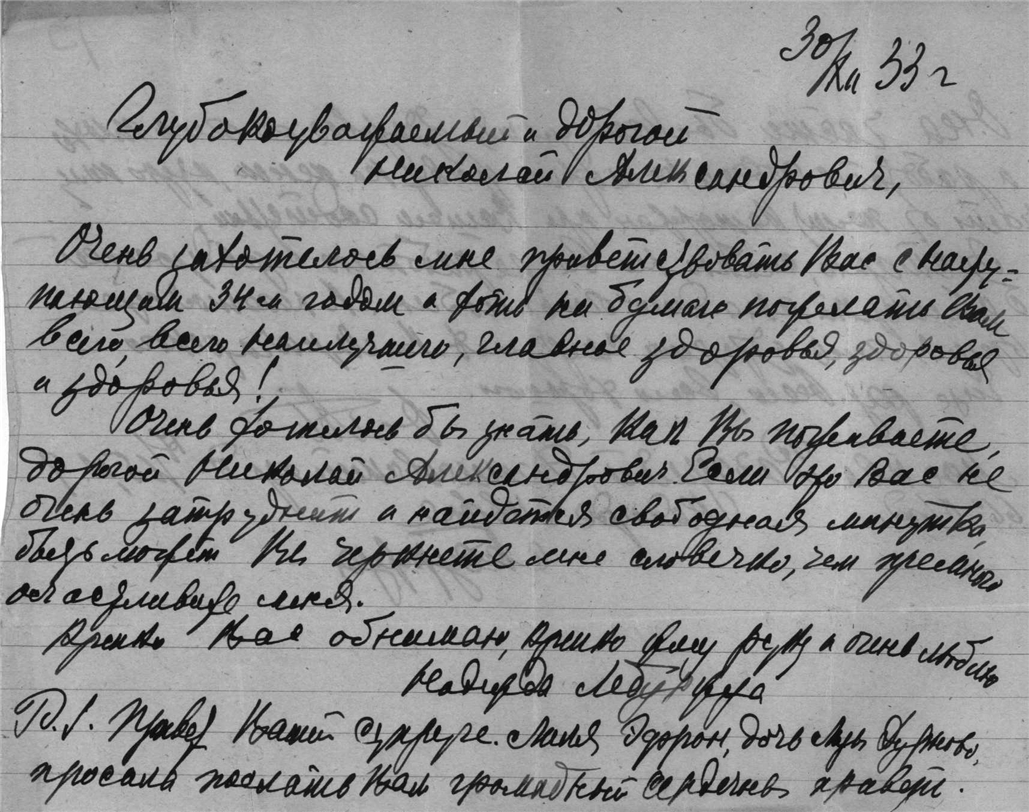 30/XII 33 г
Глубокоуважаемый и дорогой
Николай Александрович,
Очень захотелось мне приветствовать Вас с насту-
пающим 34-м годом и хоть на бумаге пожелать Вам
всего, всего наилучшего, главное здоровья, здоровья
и здоровья!
Очень хотелось бы знать, как Вы поживаете,
дорогой Николай Александрович. Если это Вас не
очень затруднит и найдется свободная минутка,
быть может Вы черкнете мне словечко, чем премного
осчастливите меня.
Крепко Вас обнимаю, крепко жму руку и очень люблю
Надежда
P.S. Привет Вашей супруге. Ляля, дочь
просила послать Вам громадный сердечный привет.